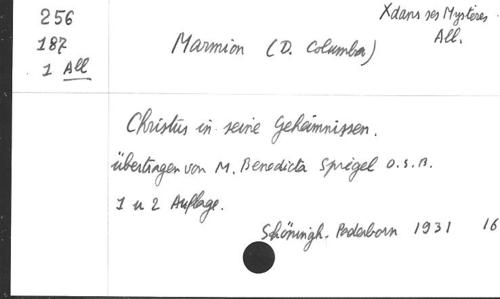 256
187
1 All
Xdans ses Mystères
All.
Marmion (D. Columba)
Christus in seine Geheimnissen.
übertragen von M. Benedicta Spiegel O.S.B.
1 u 2 Auflage.
Schöningh. Paderborn 1931 16